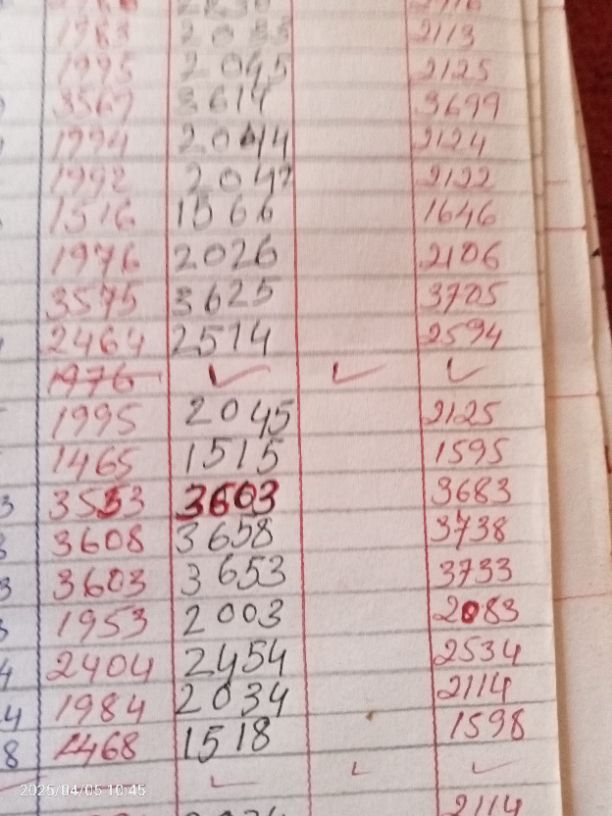 1983 2033 2113
1995 2045 2125
3569 3614 3699
1994 2044 2124
1992 2042 2122
1516 1566 1646
1976 2026 2106
3575 3625 3705
2464 2514 2594
1976 ✓ ✓ ✓
1995 2045 2125
1465 1515 1595
3 3553 3603 3683
3608 3658 3738
3 3603 3653 3733
3 1953 2003 2083
4 2404 2454 2534
4 1984 2034 2114
8 1468 1518 1598
✓ ✓ ✓
2114
2025/04/05 10:45